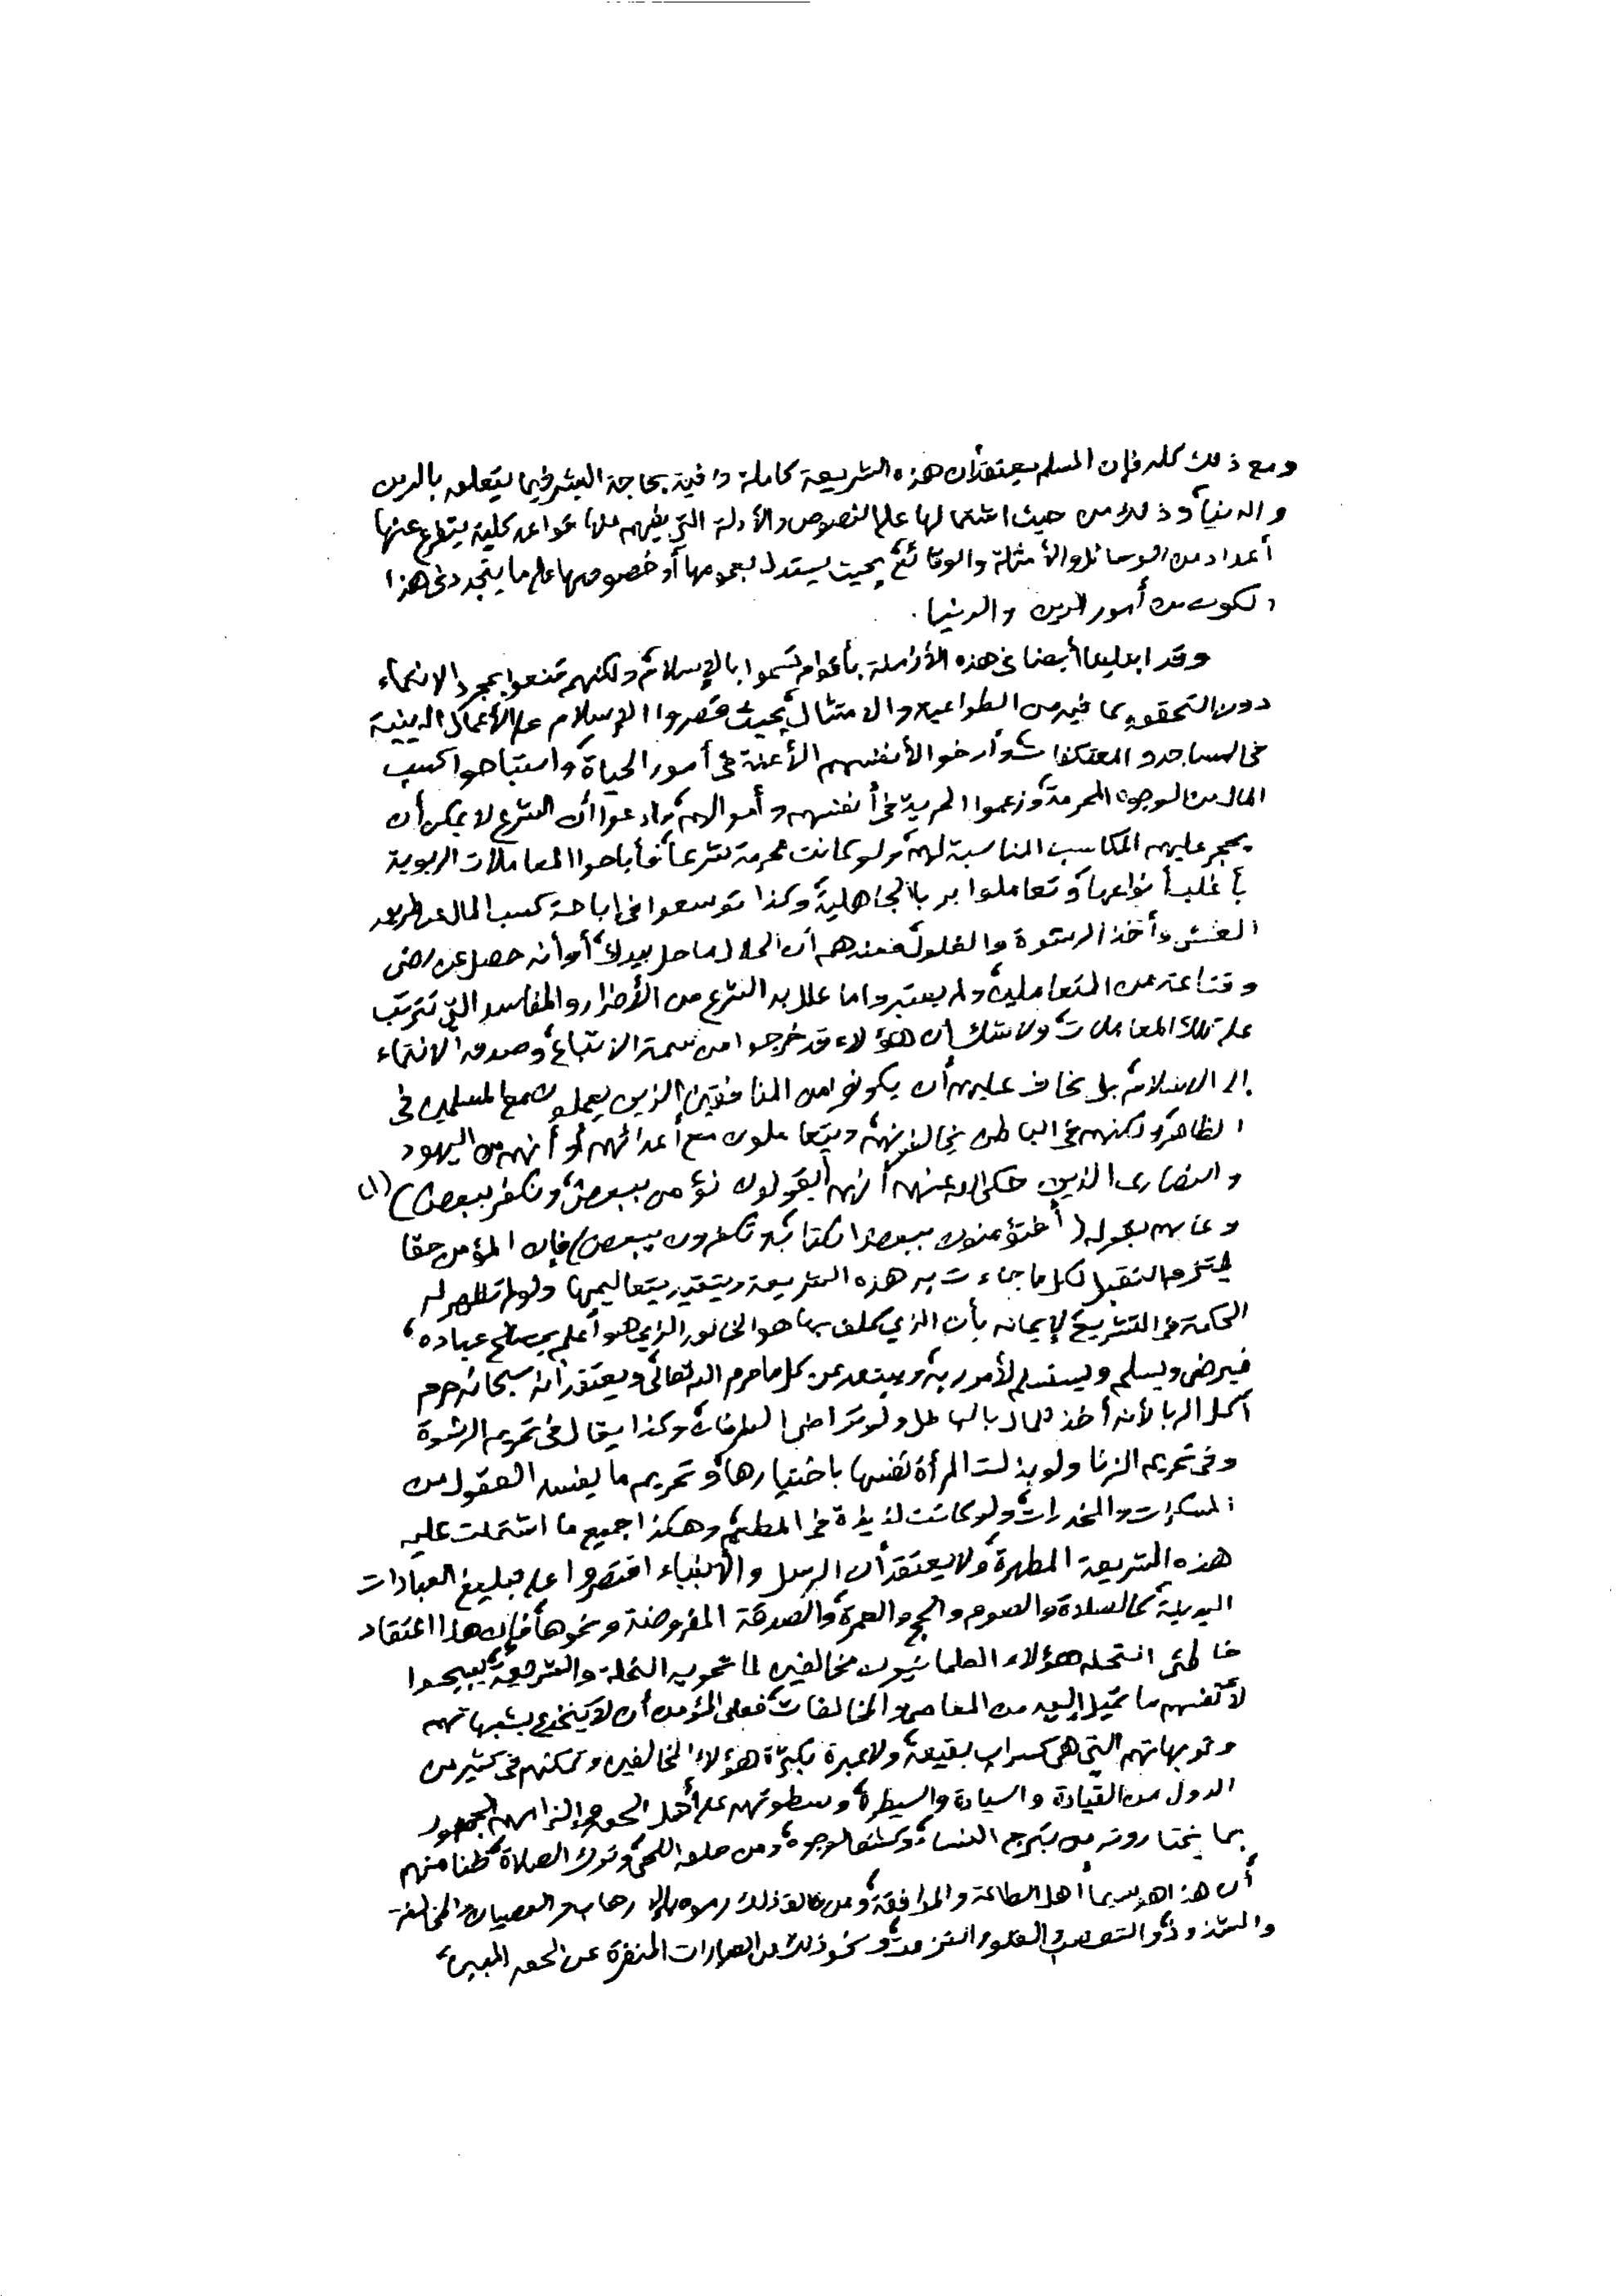 ومع ذلك كله فإن المسلم يعتقد أن هذه الشريعة كاملة وافية بحاجة البشر فيما يتعلق بالدين
والدنيا، وذلك من حيث اشتمالها على النصوص والأدلة التي يفهم منها قواعد كلية يتفرع عنها
أعداد من الوسائل والأمثلة والوقائع، بحيث يستدل بعمومها أو خصوصها على ما يتجدد في هذا
الكون من أمور الدين والدنيا.
وقد ابتلينا أيضا في هذه الأزمنة بأقوام تسموا بالإسلام، ولكنهم قنعوا بمجرد الانتماء
دون التحقق بما فيه من الطواعية والامتثال، بحيث قصروا الإسلام على الأعمال الدينية
في المساجد والمعتكفات، وأرخوا لأنفسهم الأعنة في أمور الحياة، واستباحوا كسب
المال من الوجوه المحرمة، وزعموا الحرية في أنفسهم وأموالهم، وادعوا أن الشرع لا يمكن أن
يحجر عليهم المكاسب المناسبة لهم، ولو كانت محرمة شرعا، فأباحوا المعاملات الربوية
بأغلب أنواعها، وتعاملوا بربا الجاهلية، وكذا توسعوا في إباحة كسب المال عن طريق
الغش وأخذ الرشوة والغلول، فعندهم أن الحلال ما حل بيدك، أو أنه حصل عن رضى
وقناعة من المتعاملين، ولم يعتبروا ما علل به الشرع من الأضرار والمفاسد التي تترتب
على تلك المعاملات، ولا شك أن هؤلاء قد خرجوا من سمة الاتباع، وصدق الانتماء
إلى الإسلام، بل يخاف عليهم أن يكونوا من المنافقين الذين يعملون مع المسلمين في
الظاهر، ولكنهم في الباطن يخالفونهم، ويتعاملون مع أعدائهم، أو أنهم من اليهود
والنصارى الذين حكى الله عنهم أنهم (يقولون نؤمن ببعض، ونكفر ببعض) (١)
وعابهم بقوله (أفتؤمنون ببعض الكتاب وتكفرون ببعض) فإن المؤمن حقا
يلتزم التقبل لكل ما جاءت به هذه الشريعة ويتقيد بتعاليمها ولو لم تظهر له
الحكمة في التشريع لإيمانه بأن الذي كلف بها هو الخالق الذي هو أعلم بمصالح عباده،
فيرضى ويسلم ويستسلم لأمر ربه، ويبتعد عن كل ما حرم الله تعالى، ويعتقد أنه سبحانه حرم
أكل الربا لأنه أخذ للمال بالباطل ولو تراضى الطرفان، وكذا يقال في تحريم الرشوة
وفي تحريم الزنا ولو بذلت المرأة نفسها باختيارها، وتحريم ما يفسد العقول من
المسكرات والمخدرات، ولو كانت لذيذة في المطعم، وهكذا جميع ما اشتملت عليه
هذه الشريعة المطهرة، ولا يعتقد أن الرسل والأنبياء اقتصروا على تبليغ العبادات
البدنية، كالصلاة والصوم والحج والعمرة، والصدقة المفروضة ونحوها، فإن هذا اعتقاد
خاطئ انتحله هؤلاء العلمانيون مخالفين لما تحويه النحلة والشريعة، ليبيحوا
لأنفسهم ما تميل إليه من المعاصي والمخالفات، فعلى المؤمن أن لا ينخدع بشبهاتهم
وتمويهاتهم التي هي كسراب بقيعة، ولا عبرة بكثرة هؤلاء المخالفين وتمكنهم في كثير من
الدول من القيادة والسيادة والسيطرة، وسطوتهم على أهل الحق وإلزامهم الجمهور
بما يختارونه من تبرج النساء، وكشف الوجوه، ومن حلق اللحى، وترك الصلاة، ظنا منهم
أن هذا هو سيما أهل الطاعة والموافقة، ومن خالف ذلك رموه بالإرهاب والعصيان والمخالفة
والشذوذ، والتعصب والغلو والتزمت، ونحو ذلك من العبارات المنفرة عن الحق المبين،